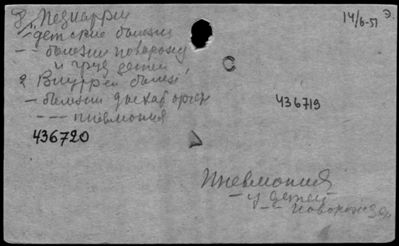 Педиатрия
14/6-51 Э.
- детские болезни
- - болезни новорожд
и груд детей
2 Внутрен болез
- болезни дыхат орган
- - - пневмония
436719
436720
Пневмония
- у детей
- - новорожд